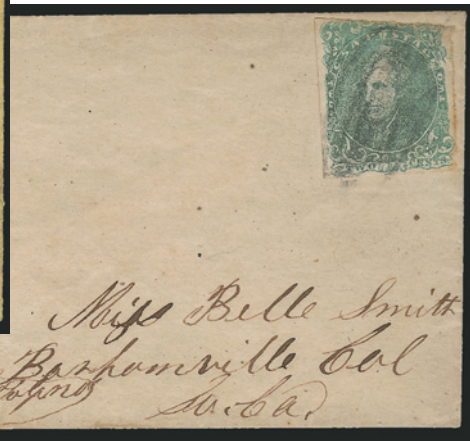 TWO CENTS
Miss Belle Smith
Barhamville Col
So. Ca.